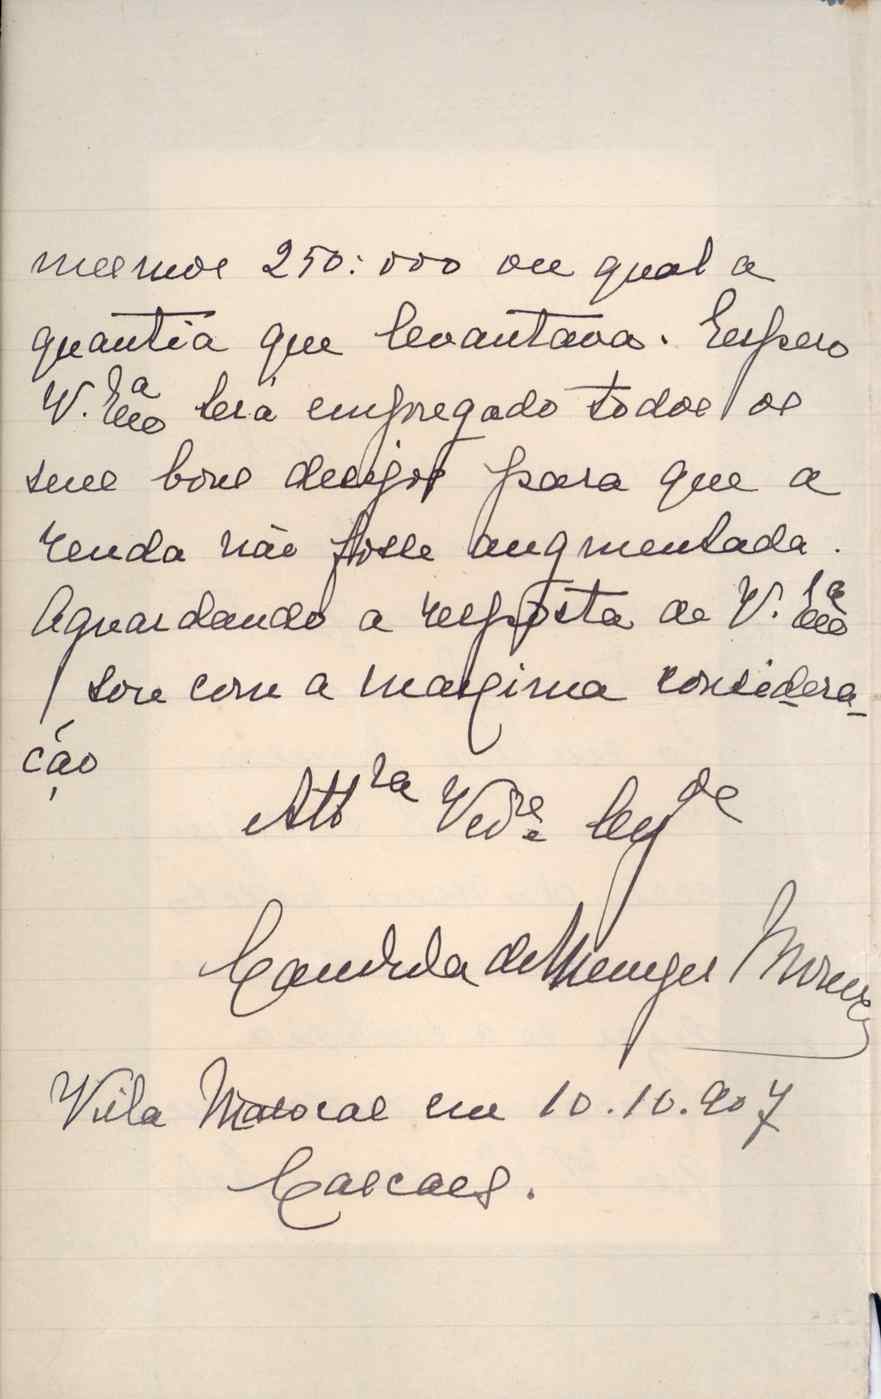 mesmos 250:000 ou qual a
quantia que levantava. Espero
V. Exª terá empregado todos os
seus bons desejos para que a
renda não fosse augmentada.
Aguardando a resposta de V. Exª
sou com a maxima considera-
ção
Attrª Vedre
Candida de Menezes
Villa em 10.10.907
Cascaes.